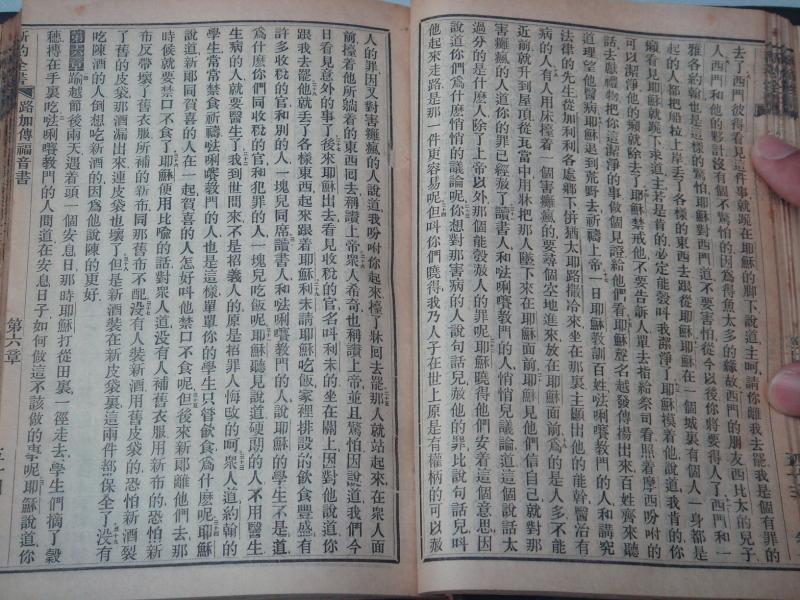 去了西門彼得看見這件事就跪在耶穌的脚下說道主呵請你離我去罷我是個有罪的
人西門和他的夥計沒有個不驚怕的因爲得魚太多的緣故西門的朋友西比太的兒子
雅各約翰也是這樣的驚怕耶穌對西門道不要害怕從今以後你將要得人了西門和一
起的人都把船拉上岸丟了各樣的東西去跟從耶穌耶穌在一個城裏有個人一身都是
癩看見耶穌就跪下求道主若是肯的必定能彀叫我潔淨了耶穌摸着他說道我肯的你
可以潔淨他的癩就除去了耶穌禁戒他不要告訴人單去指給祭司看照着摩西吩咐的
話去獻禮物把你這潔淨的事做個見證給他們看耶穌聲名越發傳揚出來百姓齊來聽
道理望他醫病耶穌退到荒野去祈禱上帝一日耶穌敎訓百姓唎敎門的人和講究
法律的先生從加利利各處鄉下併猶太耶路撒冷來坐在那裏主顯出他的能幹醫治有
病的人有人用床擡着一個害癱瘋的要尋個空地進來放在耶穌面前爲的是人多不能
近前就升到屋頂從瓦當中用牀把那人墜下來在耶穌面前耶穌見他們信自己就對那
害癱瘋的人道你的罪已經赦了讀書人和唎敎門的人悄悄兒議論道這個說話太
過分的是什麽人除了上帝以外那個能彀赦人的罪呢耶穌曉得他們安着這個意思因
說道你們爲什麽人悄悄的議論呢你想對那害病的人說句話兒赦他的罪比說句話兒叫
他起來走路是那一件更容易呢但叫你們曉得我乃人子在世上原是有權柄的可以赦
人的罪因又對害癱瘋的人說道我吩咐你起來擡了牀回去罷那人就站起來在衆人面
前擡着他所躺着的東西回去稱讚上帝衆人希奇也稱讚上帝並且驚怕因說道我們今
日看見意外的事了後來耶穌出去看見收稅的官名叫利未的坐在關上因對他說道你
跟我去罷他就丟了各樣東西起來跟着耶穌利未請耶穌吃飯家裡排設的飲食豐盛有
許多收稅的官和別的人一塊兒同席讀書人和唎敎門的人說耶穌的學生不是道
爲什麽你們同收稅的官和犯罪的人一塊兒吃飯呢耶穌聽見說道硬朗的人不用醫生
生病的人就要醫生了我到世間來不是招義人的原是招罪人悔改的呵衆人道約翰的
學生常常禁食祈禱唎敎門的人也是這樣單單你的學生只管飲食爲什麽呢耶穌
說道新耶同賀喜的人在一起賀喜的人怎好叫他禁口不食呢但後來新耶離他們去那
時候就要禁口不食了耶穌便用比喻的話對衆人道沒有人補舊衣服用新布的恐怕新
布反帶壞了舊衣服所補的新布同那舊布不配沒有人裝新酒用舊皮袋的恐怕新酒裂
了舊的皮袋那酒漏出來連皮袋也壞了但是新酒裝在新皮袋裏這兩件都保全了沒有
吃陳酒的人倒想吃新酒的因爲他說陳的更好
第六章踰越節後兩天遇着頭一個安息日那時耶穌打從田裏一徑走去學生們摘了穀
穗搏在手裏吃唎敎門的人間道在安息日子如何做這不該做的事呢耶穌說道你
新約全書 路加傳福音書 第六章